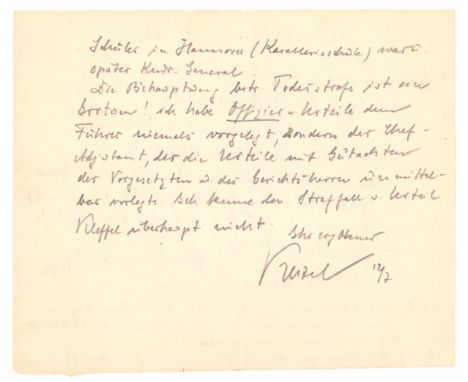 Schüler in Hannover (Kavallerieschule) war u.
später Kmdr. General.
Die Behauptung betr. Todesstrafe ist ein
Irrtum! ich habe Offizier-Urteile dem
Führer niemals vorgelegt, sondern der Chef-
Adjutant, der die Urteile mit Gutachten
der Vorgesetzten u. des Gerichtsherrn unmittel-
bar vorlegte. Ich kenne den Straffall u. Urteil
Kleffel überhaupt nicht.
Ihr ergebener
Keitel 12/7